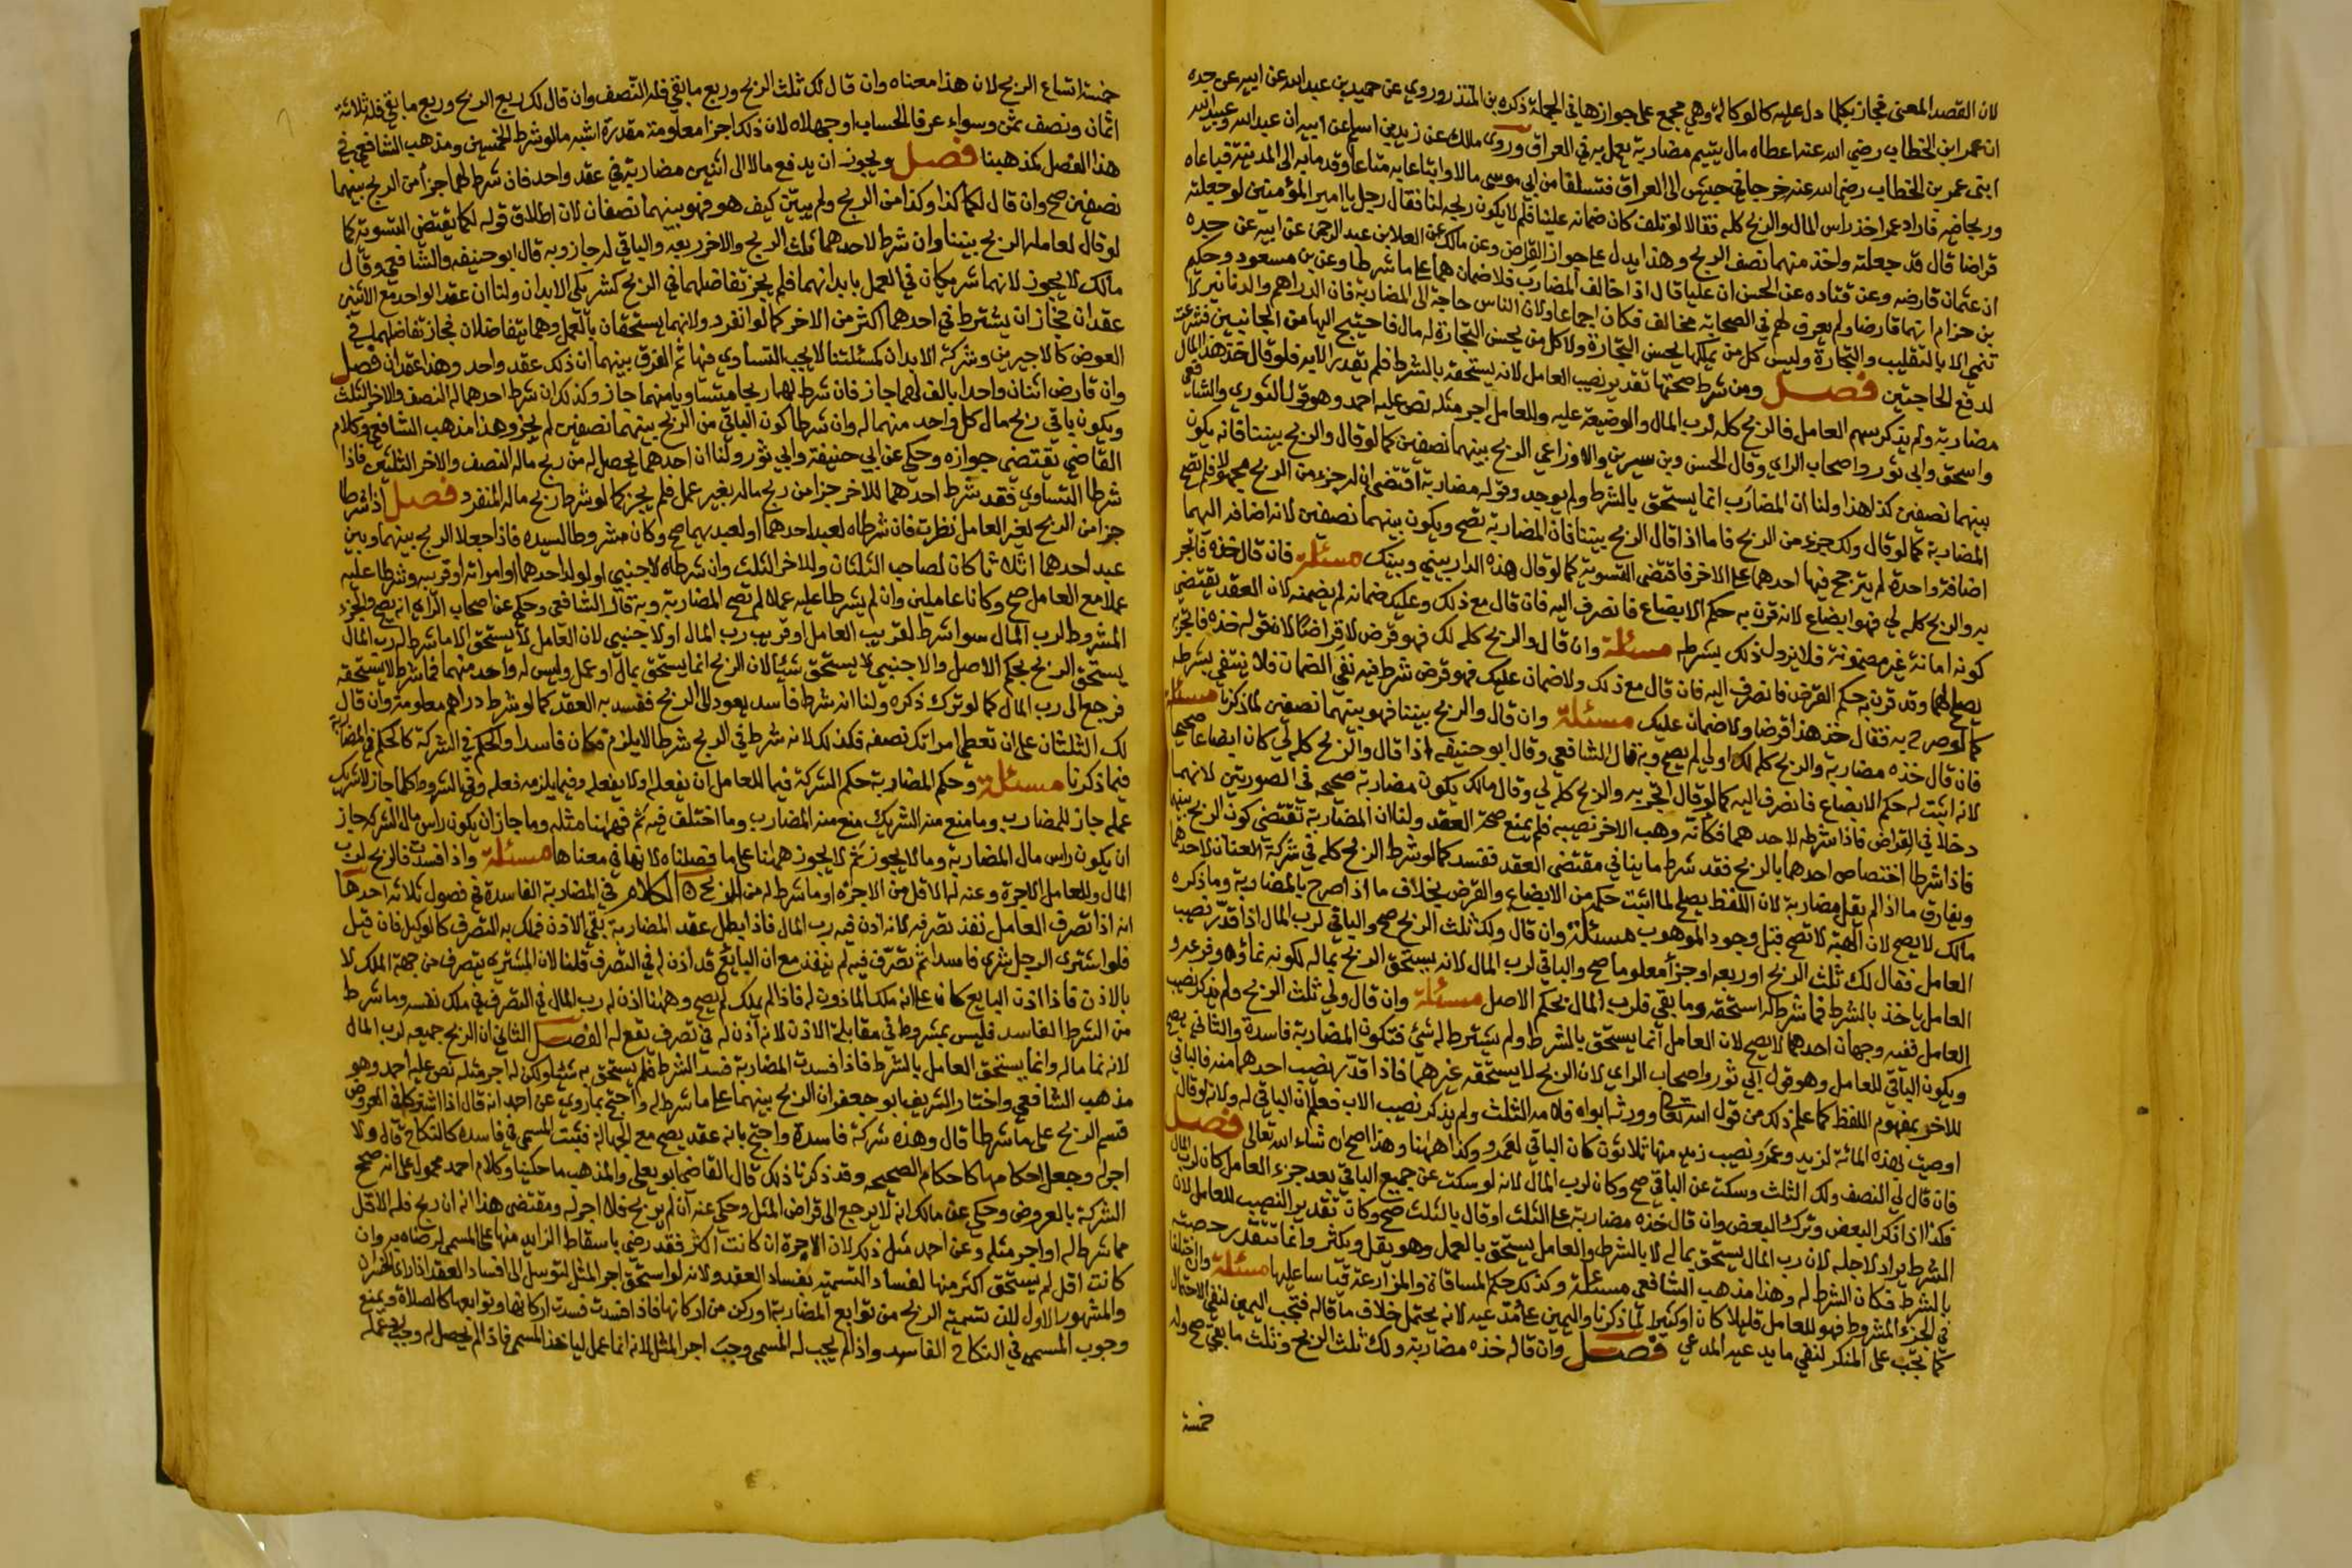 لان القصد المعنى فجاز بكلما دل عليه كالوكالة وهي مجمع على جوازها في الجملة ذكره بن المنذر وروي عن حميد بن عبد الله عن ابيه عن جده
ان عمر ابن الخطاب رضي الله عنه اعطاه مال يتيم مضاربة يعمل به في العراق وروى مالك عن زيد بن اسلم عن ابيه ان عبد الله وعبيد الله
ابني عمر بن الخطاب رضي الله عنه خرجا في جيش الى العراق فتسلفا من ابي موسى مالا وابتاعا به متاعا وقدما به الى المدينة فباعاه
وربحا فيه فاراد عمر اخذ راس المال والربح كله فقالا لو تلف كان ضمانه علينا فلم لا يكون ربحه لنا فقال رجل يا امير المؤمنين لو جعلته
قراضا قال قد جعلته واخذ منهما نصف الربح وهذا يدل على جواز القراض وعن مالك عن العلا بن عبد الرحمن عن ابيه عن جده
ان عثمان قارضه وعن قتاده عن الحسن ان عليا قال اذا خالف المضارب فلا ضمان هما على ما شرطا وعن بن مسعود وحكيم
بن حزام انهما قارضا ولم يعرف لهم في الصحابه مخالف فكان اجماعا ولان الناس حاجة الى المضاربة فان الدراهم والدنانير لا
تنمي الا بالتقليب والتجارة وليس كل من يملكها يحسن التجارة ولا كل من يحسن التجارة له مال فاحتيج اليها من الجانبين فشرعت
لدفع الحاجتين فصل ومن شرط صحتها تقدير نصيب العامل لانه يستحقه بالشرط فلم يقدر الا به فلو قال خذ هذا المال
مضاربة ولم يذكر سهم العامل فالربح كله لرب المال والوضيعة عليه وللعامل اجر مثله نص عليه احمد وهو قول الثوري والشافعي
واسحق وابي ثور واصحاب الراي وقال الحسن وبن سيرين والاوزاعي الربح بينهما نصفين كما لو قال والربح بيننا فانه يكون
بينهما نصفين كذا هذا ولنا ان المضارب انما يستحق بالشرط ولم يوجد وقوله مضاربة اقتضى ان له جزء من الربح مجهولا فلم تصح
المضاربة كما لو قال ولك جزء من الربح فاما اذا قال الربح بيننا فان المضاربة تصح ويكون بينهما نصفين لانه اضافه اليهما
اضافة واحدة لم يترجح فيها احدهما على الاخر فاقتضى التسوية كما لو قال هذه الدار بيني وبينك مسئلة فان قال خذه فاتجر
به والربح كله لي فهو ابضاع لانه قرن به حكم الابضاع فانصرف اليه فان قال مع ذلك وعليك ضمانه لم يضمنه لان العقد يقتضي
كونه امانة غير مضمونة فلا يزول ذلك بشرطه مسئلة وان قال والربح كله لك فهو قرض لا قراضا لان قوله خذه فاتجر به
يصلح لهما وقد قرن به حكم القرض فانصرف اليه فان قال مع ذلك ولا ضمان عليك فهو قرض شرط فيه نفي الضمان فلا ينتفي بشرطه
كما لو صرح به فقال خذ هذا قرضا ولا ضمان عليك مسئلة وان قال والربح بيننا فهو بينهما نصفين لما ذكرنا مسئلة
فان قال خذه مضاربة والربح كله لك او لي لم يصح وبه قال الشافعي وقال ابو حنيفه اذا قال والربح كله لي كان ابضاعا صحيحا
لانه اثبت له حكم الابضاع فانصرف اليه كما لو قال اتجر به والربح كله لي وقال مالك يكون مضاربة صحيحه في الصورتين لانهما
دخلا في القراض فاذا شرطه لاحدهما فكانه وهب الاخر نصيبه فلم يمنع صحة العقد ولنا ان المضاربة تقتضي كون الربح بينهما
فاذا شرطا اختصاص احدهما بالربح فقد شرط ما ينافي مقتضى العقد ففسد كما لو شرط الربح كله في شركة العنان لاحدهما
ويفارق ما اذا لم يقل مضاربة لان اللفظ يصلح لما اثبت حكمه من الابضاع والقرض بخلاف ما اذا صرح بالمضاربة وما ذكره
مالك لا يصح لان الهبة لا تصح قبل وجود الموهوب مسئلة وان قال ولك ثلث الربح صح والباقي لرب المال اذا قدر نصيب
العامل فقال لك ثلث الربح او ربعه او جزأ معلوما صح والباقي لرب المال لانه يستحق الربح بماله لكونه نماؤه وفرعه و
العامل ياخذ بالشرط فما شرط له استحقه وما بقي فلرب المال بحكم الاصل مسئلة وان قال ولي ثلث الربح ولم يذكر نصيب
العامل ففيه وجهان احدهما لا يصح لان العامل انما يستحق بالشرط ولم يشترط له شيء فتكون المضاربة فاسدة والثاني يصح
ويكون الباقي للعامل وهو قول ابي ثور واصحاب الراي لان الربح لا يستحقه غيرهما فاذا قدر نصيب احدهما منه فالباقي
للاخر بمفهوم اللفظ كما علم ذلك من قول الله تعالى وورثه ابواه فلامه الثلث ولم يذكر نصيب الاب فعلم ان الباقي له ولانه لو قال
اوصيت بهذه المائة لزيد وعمرو ونصيب زيد منها ثلاثون كان الباقي لعمرو وكذا ههنا وهذا اصح ان شاء الله تعالى فصل
فان قال لي النصف ولك الثلث وسكت عن الباقي صح وكان لرب المال لانه لو سكت عن جميع الباقي بعد جزء العامل كان لرب المال
فكذا اذا ذكر البعض وترك البعض وان قال خذه مضاربة على الثلث او قال بالثلث صح وكان تقدير النصيب للعامل لان
الشرط يراد لاجله لان رب المال يستحق بماله لا بالشرط والعامل يستحق بالعمل وهو يقل ويكثر وانما تتقدر حصته
بالشرط فكان الشرط له وهذا مذهب الشافعي مسئلة وكذلك حكم المساقاة والمزارعة قياسا عليها مسئلة وان اختلفا
في الجزء المشروط فهو للعامل قليلا كان او كثيرا لما ذكرنا واليمين على مدعيه لانه يحتمل خلاف ما قاله فتجب اليمين لنفي الاحتمال
كما تجب على المنكر لنفي ما يدعيه المدعي فصل وان قال خذه مضاربة ولك ثلث الربح وثلث ما بقي صح وله
خمسة
خمسة اتساع الربح لان هذا معناه وان قال لك ثلث الربح وربع ما بقي فله النصف وان قال لك ربع الربح وربع ما بقي فله ثلاثة
اثمان ونصف ثمن وسواء عرفا الحساب او جهلاه لان ذلك اجزا معلومة مقدرة اشبه ما لو شرط الخمسين ومذهب الشافعي في
هذا الفصل كمذهبنا فصل ويجوز ان يدفع مالا الى اثنين مضاربة في عقد واحد فان شرط لهما جزأ من الربح بينهما
نصفين صح وان قال لكما كذا وكذا من الربح ولم يبين كيف هو فهو بينهما نصفان لان اطلاق قوله لكما يقتضي التسوية كما
لو قال لعامله الربح بيننا وان شرط لاحدهما ثلث الربح والاخر ربعه والباقي له جاز وبه قال ابو حنيفه والشافعي وقال
مالك لا يجوز لانهما شريكان في العمل بابدانهما فلم يجز تفاضلهما في الربح كشريكي الابدان ولنا ان عقد الواحد مع الاثنين
عقدان فجاز ان يشترط في احدهما اكثر من الاخر كما لو انفرد ولانهما يستحقان بالعمل وهما يتفاضلان فجاز تفاضلهما في
العوض كالاجيرين وشركة الابدان كمسئلتنا لا يجب التساوي فيها ثم الفرق بينهما ان ذلك عقد واحد وهذا عقدان فصل
وان قارض اثنان واحدا بالف لهما جاز فان شرط لهما ربحا متساويا منهما جاز وكذلك ان شرط احدهما له النصف والاخر الثلث
ويكون باقي ربح مال كل واحد منهما له وان شرطا كون الباقي من الربح بينهما نصفين لم يجز وهذا مذهب الشافعي وكلام
القاضي يقتضي جوازه وحكي عن ابي حنيفة وابي ثور ولنا ان احدهما يحصل له من ربح ماله النصف والاخر الثلثين فاذا
شرطا التساوي فقد شرط احدهما للاخر جزا من ربح ماله بغير عمل فلم يجز كما لو شرط ربح ماله المنفرد فصل اذا شرطا
جزا من الربح لغير العامل نظرت فان شرطاه لعبد احدهما او لعبديهما صح وكان مشروطا لسيده فاذا جعلا الربح بينهما وبين
عبد احدهما اثلاثا كان لصاحب العبد الثلثان وللاخر الثلث وان شرطاه لاجنبي او لولد احدهما او امراته او قريبه وشرطا عليه
عملا مع العامل صح وكانا عاملين وان لم يشرطا عليه عملا لم تصح المضاربة وبه قال الشافعي وحكي عن اصحاب الراي انه يصح والجزء
المشروط لرب المال سوا شرط لقريب العامل او قريب رب المال او لاجنبي لان العامل لا يستحق الا ما شرط له رب المال
يستحق الربح بحكم الاصل والاجنبي لا يستحق شيئا لان الربح انما يستحق بمال او عمل وليس له واحد منهما فما شرط لا يستحقه
فرجع الى رب المال كما لو ترك ذكره ولنا انه شرط فاسد يعود الى الربح ففسد به العقد كما لو شرط دراهم معلومة وان قال
لك الثلثان على ان تعطي امراتك نصفه فكذلك لانه شرط في الربح شرطا لا يلزم فكان فاسدا والحكم في الشركة كالحكم في المضاربة
فيما ذكرنا مسئلة وحكم المضاربة حكم الشركة فيما للعامل ان يفعله او لا يفعله وفيما يلزمه فعله وفي الشروط كلما جاز للشريك
عمله جاز للمضارب وما منع منه الشريك منع منه المضارب وما اختلف فيه ثم فههنا مثله وما جاز ان يكون راس مال الشركة جاز
ان يكون راس مال المضاربة وما لا يجوز ثم لا يجوز ههنا على ما فصلناه لانها في معناها مسئلة واذا فسدت فالربح لرب
المال وللعامل الاجرة وعنه له الاقل من الاجرة او ما شرط له من الربح الكلام في المضاربة الفاسدة في فصول ثلاثه احدها
انه اذا تصرف العامل نفذ تصرفه لانه اذن فيه رب المال فاذا بطل عقد المضاربة بقي الاذن فملك به التصرف كالوكيل فان قيل
فلو اشترى الرجل شرى فاسدا ثم تصرف فيه لم ينفذ مع ان البايع قد اذن له في التصرف قلنا لان المشتري يتصرف من جهة الملك لا
بالاذن فاذا اذن البايع كان على انه ملك الماذون له فاذا لم يملك لم يصح وههنا اذن له رب المال في التصرف في ملك نفسه وما شرط
من الشرط الفاسد فليس بمشروط في مقابلة الاذن لانه اذن له في تصرف يقع له الفصل الثاني ان الربح جميعه لرب المال
لانه نما ماله وانما يستحق العامل بالشرط فاذا فسدت المضاربة فسد الشرط فلم يستحق به شيئا ولكن له اجر مثله نص عليه احمد وهو
مذهب الشافعي واختار الشريف ابو جعفر ان الربح بينهما على ما شرطه واحتج بما روي عن احمد انه قال اذا اشتركا في العروض
قسم الربح على ما شرطا قال وهذه شركة فاسدة واحتج بانه عقد يصح مع الجهالة فيثبت المسمى في فاسده كالنكاح قال ولا
اجر له وجعل احكامها كاحكام الصحيحه وقد ذكرنا ذلك قال القاضي ابو يعلى والمذهب ما حكينا وكلام احمد محمول على انه صحح
الشركة بالعروض وحكي عن مالك انه لا يرجع الى قراض المثل وحكي عنه ان لم يربح فلا اجر له ومقتضى هذا انه ان ربح فله الاقل
مما شرط له او اجر مثله وعن احمد مثل ذلك لان الاجرة ان كانت اكثر فقد رضي باسقاط الزايد منها على المسمى لرضاه به وان
كانت اقل لم يستحق اكثر منها لفساد التسمية بفساد العقد ولانه لو استحق اجر المثل لتوسل الى افساد العقد اذا راى الخسران
والمشهور الاول لان تسمية الربح من توابع المضاربة او ركن من اركانها فاذا فسدت فسدت اركانها وتوابعها كالصلاة ويمنع
وجوب المسمى في النكاح الفاسد واذا لم يجب له المسمى وجب اجر المثل لانه انما عمل لياخذ المسمى فاذا لم يحصل له وجب رد عمله